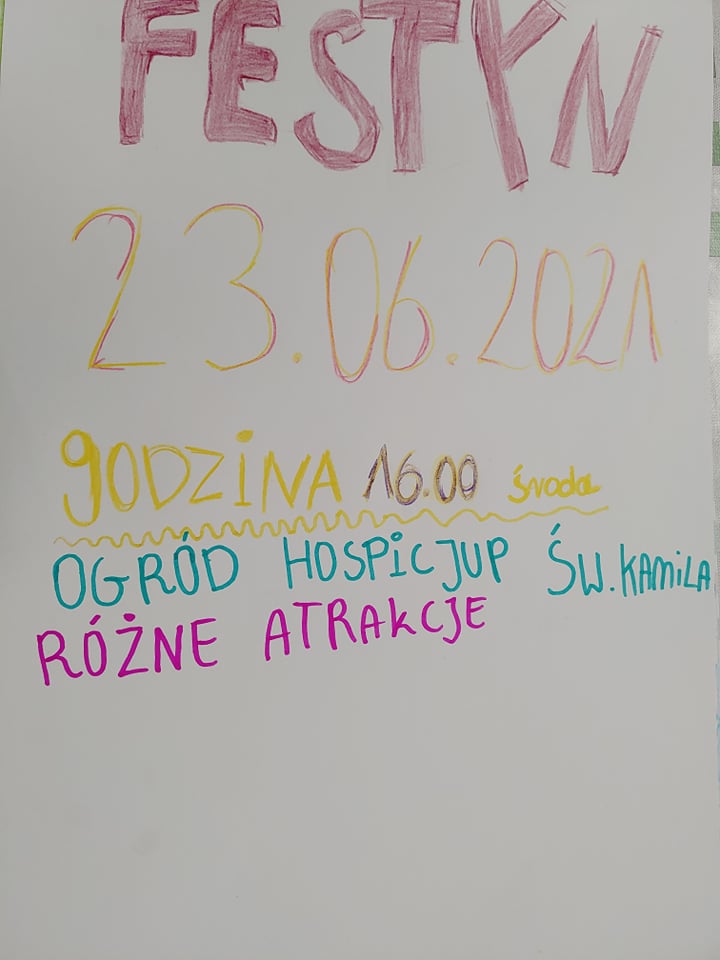 FESTYN
23.06.2021
gODZiNA 16.00 środa
OGRÓD HOSPiCJUP ŚW. KAMiLA
RÓŻNE ATRAKCJE